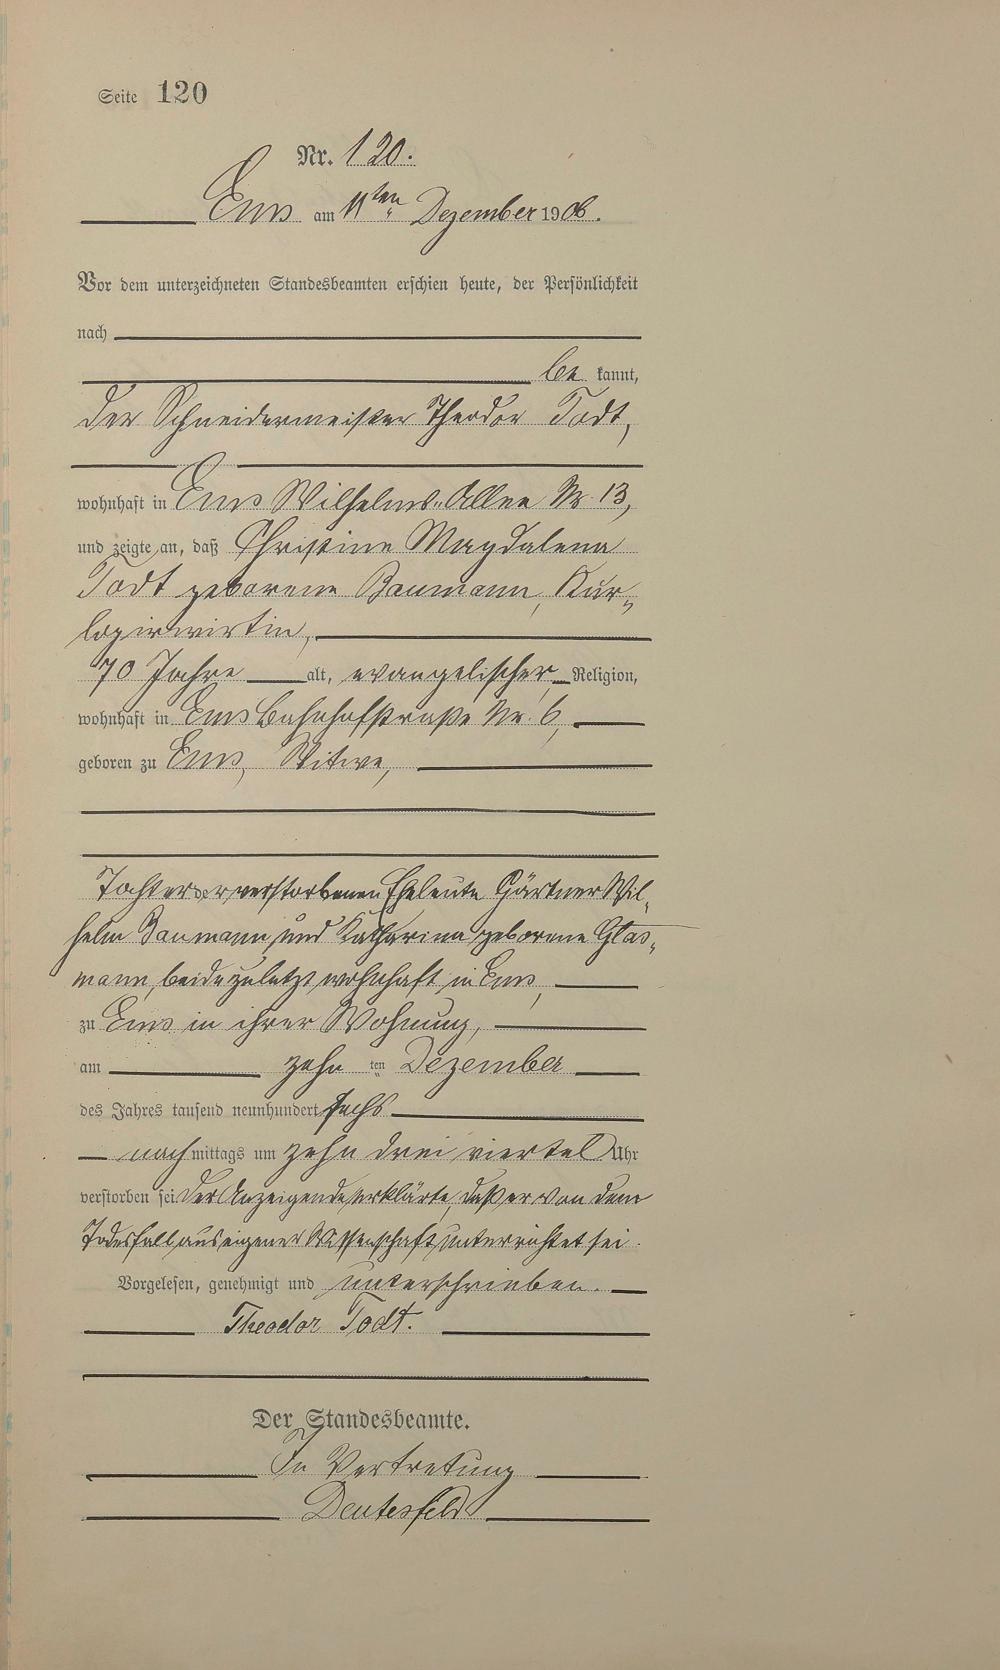 Seite 120
Nr. 120.
Ems am 11ten Dezember 1906.
Vor dem unterzeichneten Standesbeamten erschien heute, der Persönlichkeit
nach
be kannt,
der Schneidermeister Theodor Todt,
wohnhaft in Ems Wilhelms-Allee Nr. 13,
und zeigte an, daß Christine Magdalena
Todt geborene Baumann, Kur-
logirwirtin,
70 Jahre alt, evangelischer Religion,
wohnhaft in Ems Bahnhofstraße Nr. 6,
geboren zu Ems, Witwe,
Tochter der verstorbenen Eheleute Gärtner Wil-
helm Baumann und Katharina geborene Glas-
mann, beide zuletzt wohnhaft in Ems,
zu Ems in ihrer Wohnung,
am zehn ten Dezember
des Jahres tausend neunhundert sechs
nach mittags um zehn drei viertel Uhr
verstorben sei Der Anzeigende erklärte, daß er von dem
Todesfall aus eigener Wissenschaft unterrichtet sei.
Vorgelesen, genehmigt und unterschrieben.
Theodor Todt.
Der Standesbeamte.
In Vertretung
Deutesfeld